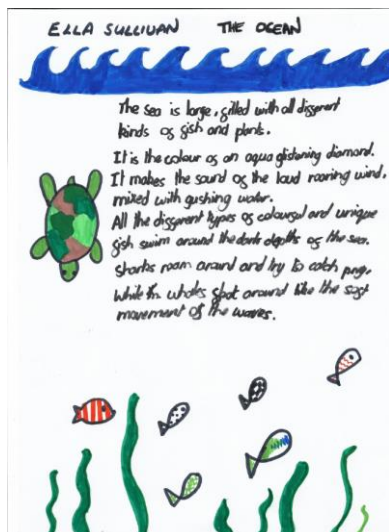 ELLA SULLIVAN THE OCEAN
The sea is large, filled with all different
kinds of fish and plants.
It is the colour of an aqua glistening diamond.
It makes the sound of the loud roaring wind,
mixed with gushing water.
All the different types of colourful and unique
fish swim around the dark depths of the sea.
Sharks roam around and try to catch prey,
While the whales float around like the soft
movement of the waves.